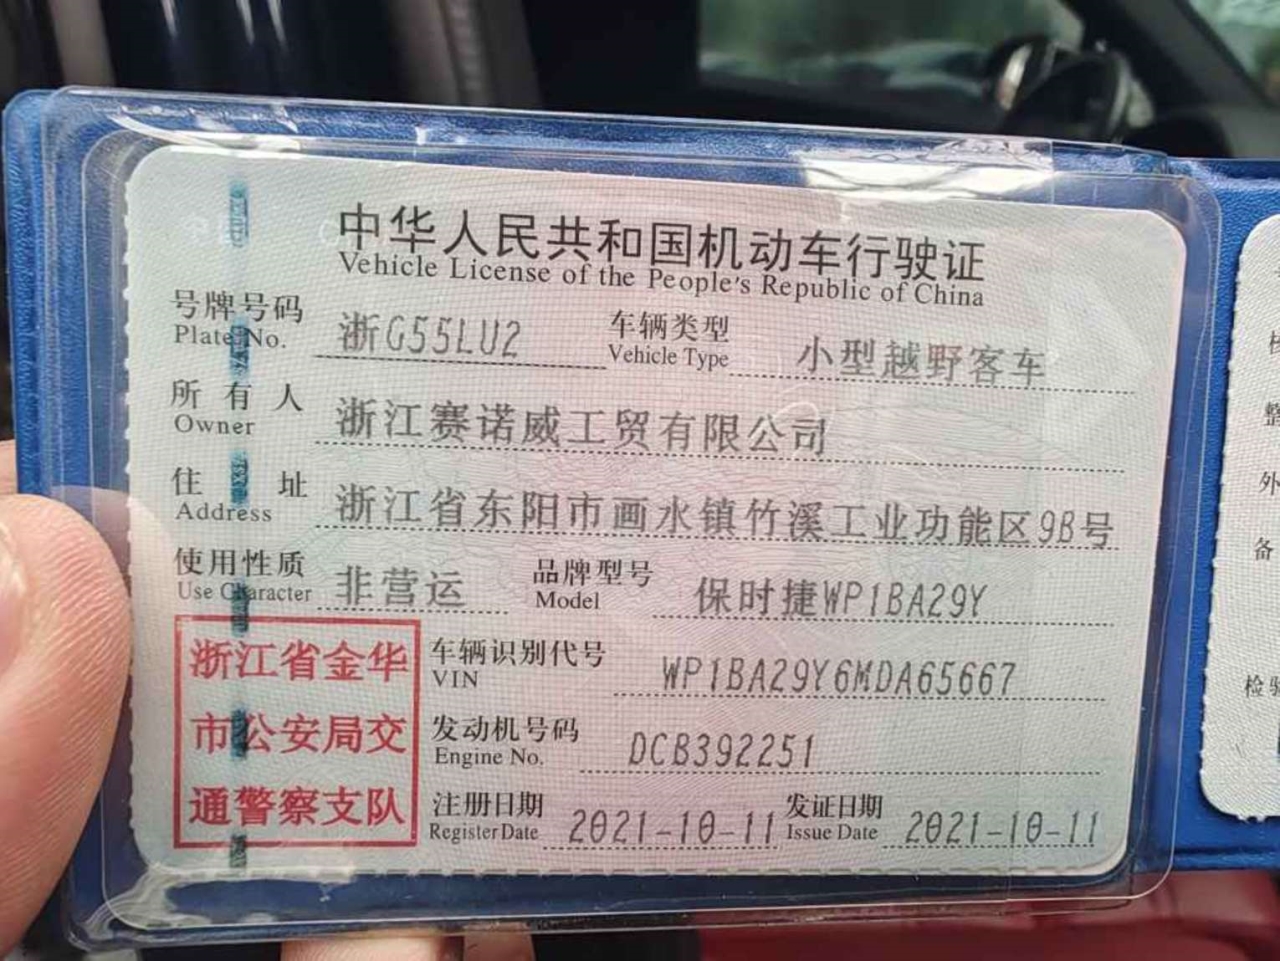 中华人民共和国机动车行驶证
Vehicle License of the People's Republic of China
号牌号码 浙G55LU2 车辆类型 小型越野客车
Plate No. Vehicle Type
所有人 浙江赛诺威工贸有限公司
Owner
住址 浙江省东阳市画水镇竹溪工业功能区9B号
Address
使用性质 非营运 品牌型号 保时捷WP1BA29Y
Use Character Model
浙江省金华
市公安局交
通警察支队
车辆识别代号 WP1BA29Y6MDA65667
VIN
发动机号码 DCB392251
Engine No.
注册日期 2021-10-11 发证日期 2021-10-11
Register Date Issue Date
整
外
备
检验